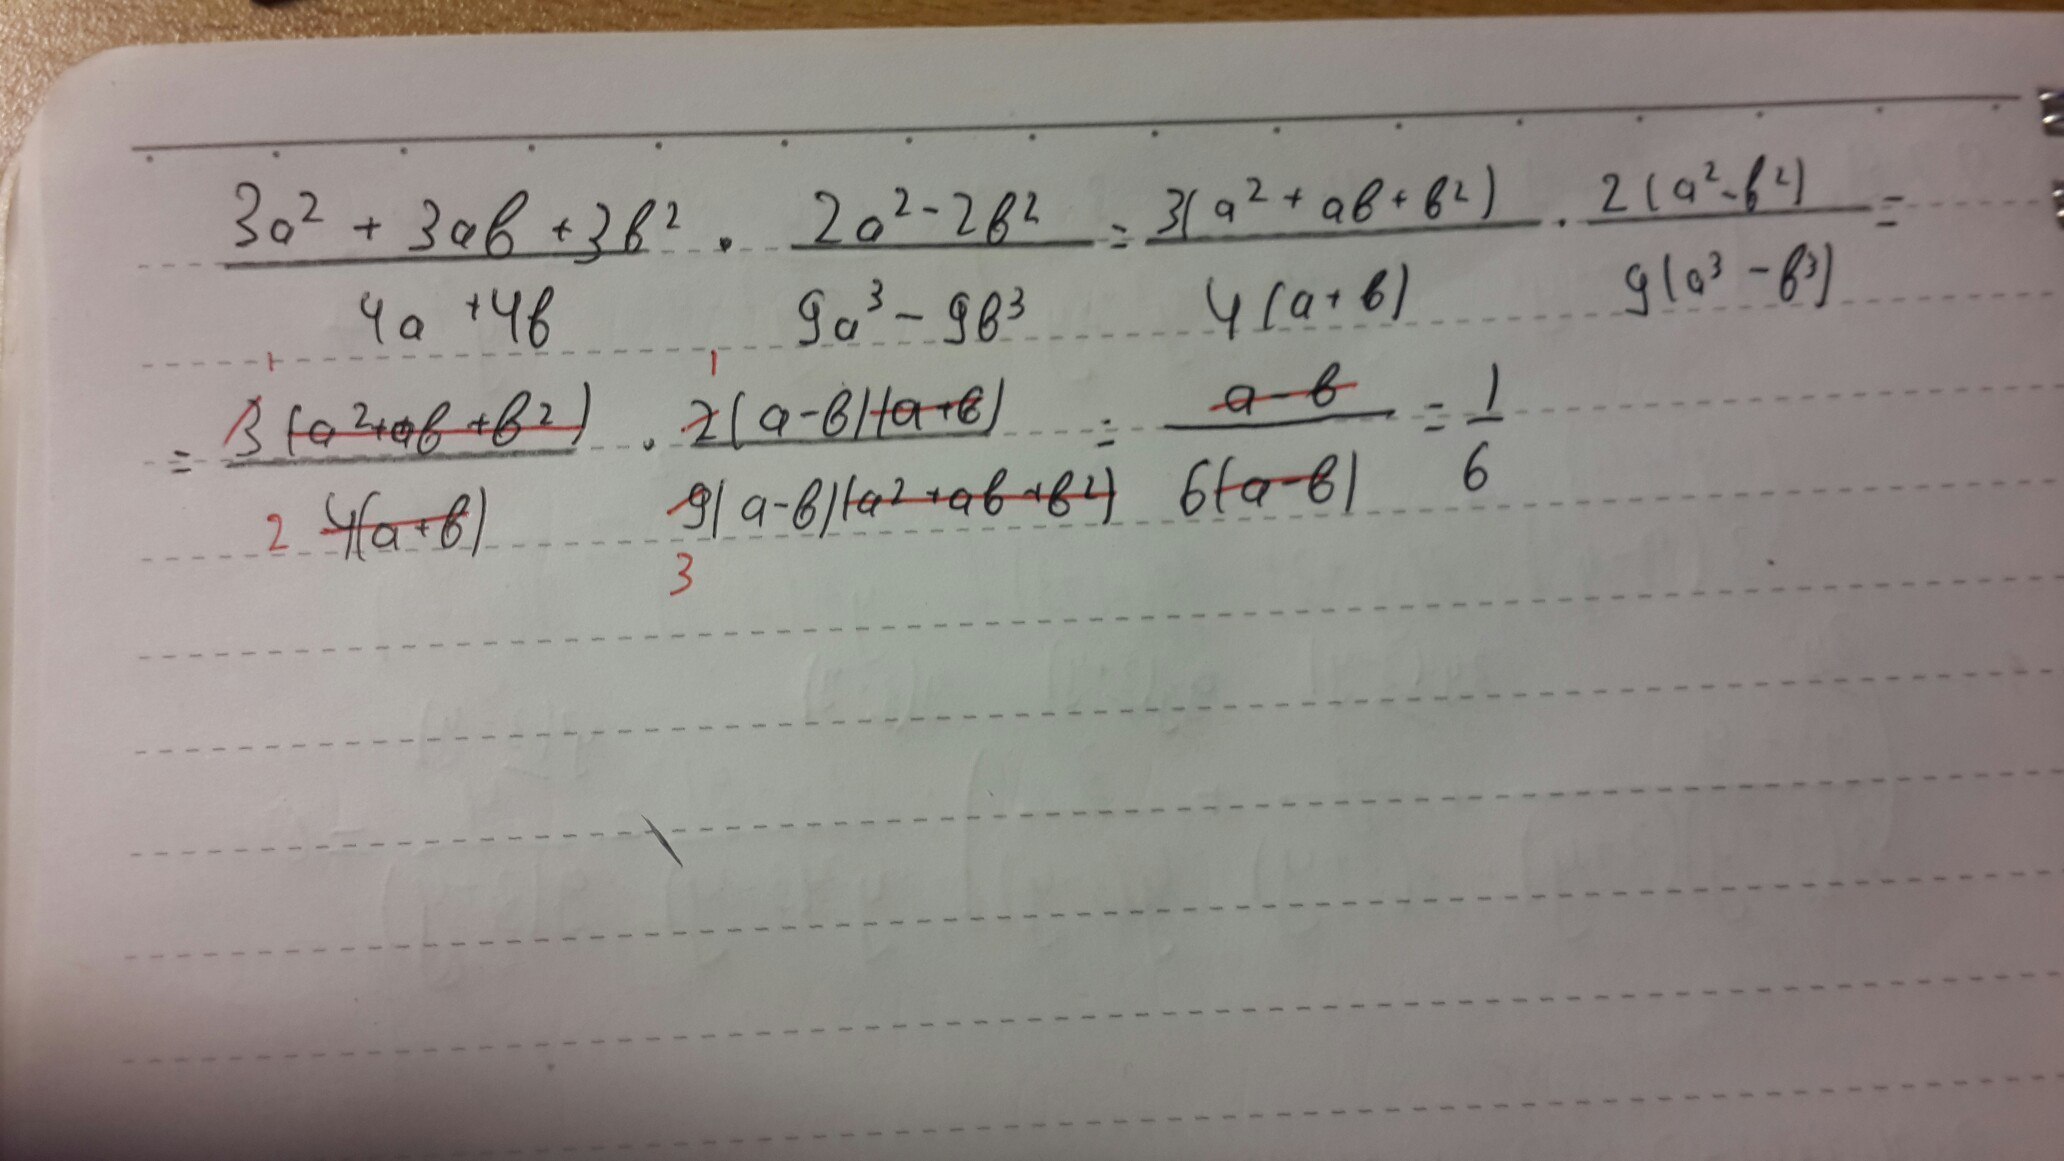 (3a² + 3ab + 3b²)/(4a + 4b) · (2a² - 2b²)/(9a³ - 9b³) = 3(a² + ab + b²)/4(a + b) · 2(a² - b²)/9(a³ - b³) =
= 3(a² + ab + b²)/4(a + b) · 2(a - b)(a + b)/9(a - b)(a² + ab + b²) = (a - b)/6(a - b) = 1/6
1 1
2 3